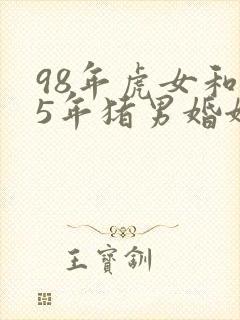 98年虎女和
5年猪男婚姻
王寳釧